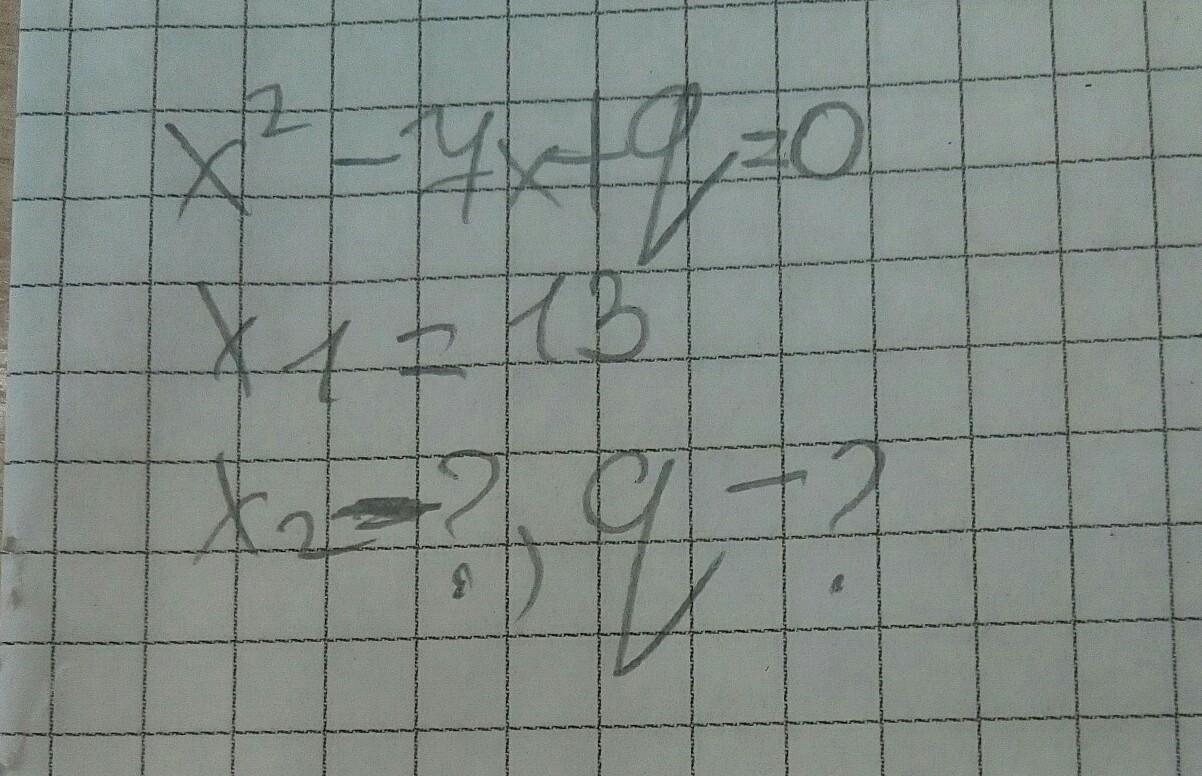 x² - 7x + q = 0
x₁ = 13
x₂ - ?, q - ?